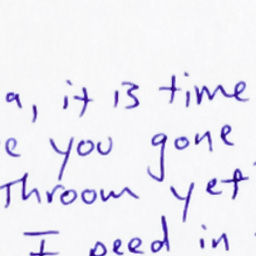 a, it is time
e you gone
throom yet
I peed in